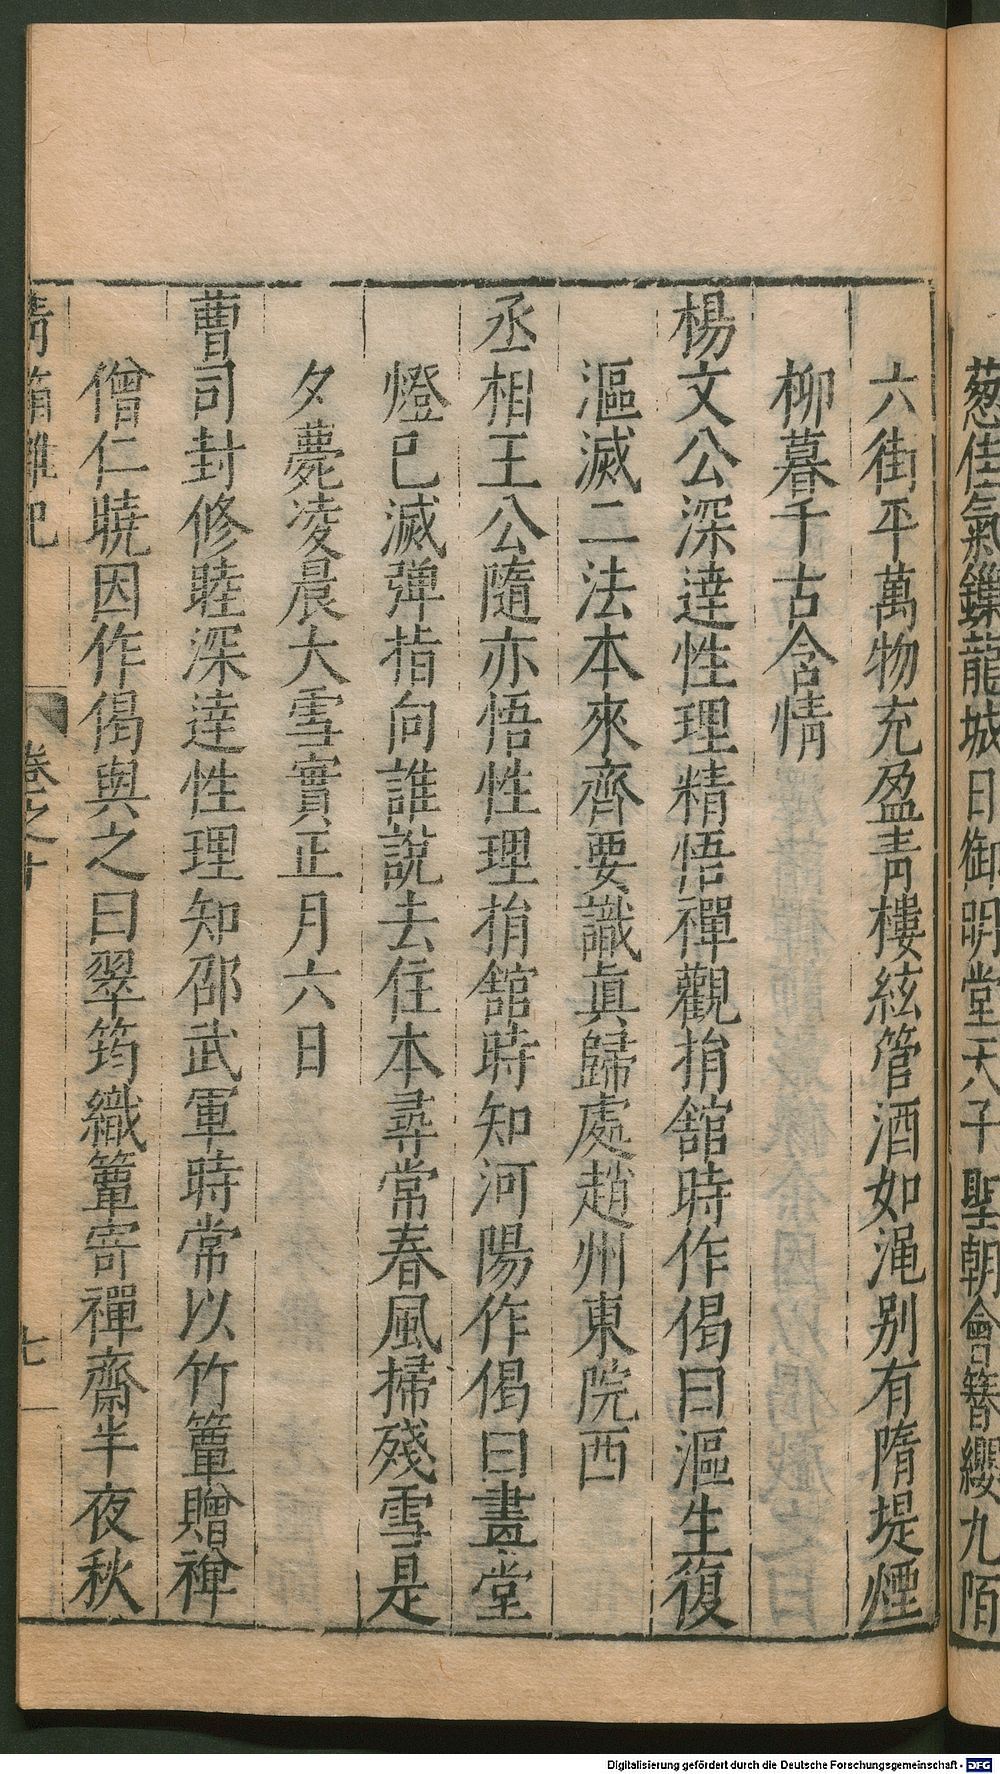 葱佳氣鏁龍城日御明堂天子聖朝會簪纓九陌
六街平萬物充盈青樓絃管酒如澠别有隋堤煙
柳暮千古含情
楊文公深達性理精悟禪觀捐舘時作偈曰漚生復
漚滅二法本來齊要識眞歸處趙州東院西
丞相王公隨亦悟性理捐舘時知河陽作偈曰畫堂
燈已滅彈指向誰說去住本尋常春風掃殘雪是
夕薨凌晨大雪實正月六日
曹司封修睦深達性理知邵武軍時常以竹簟贈禅
僧仁曉因作偈與之曰翠筠織簟寄禪齋半夜秋
青箱雜記
卷之十
七
Digitalisierung gefördert durch die Deutsche Forschungsgemeinschaft - DFG